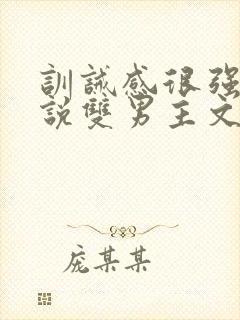 訓誡感很强
說雙男主文
庞某某